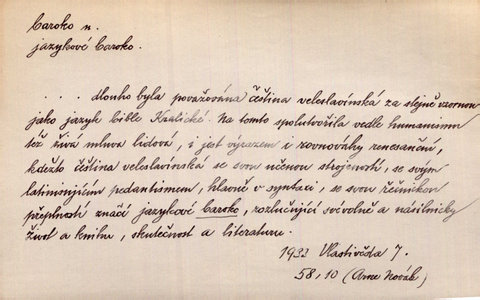 baroko n.
jazykové baroko.
. . . . dlouho byla považována čeština veleslavínská za stejně vzornou
jako jazyk bible Kralické. Na tomto spolutvořila vedle humanismu
též živá mluva lidová, i jest výrazem i rovnováhy renesanční,
kdežto čeština veleslavínská se svou učenou strojeností, se svým
latinisujícím pedantismem, hlavně v syntaxi, se svou řečnickou
přeplností značí jazykové baroko, rozlučující svévolně a násilnicky
život a knihu, skutečnost a literaturu.
1933 Vlastivěda 7.
58,10 (Arne Novák)